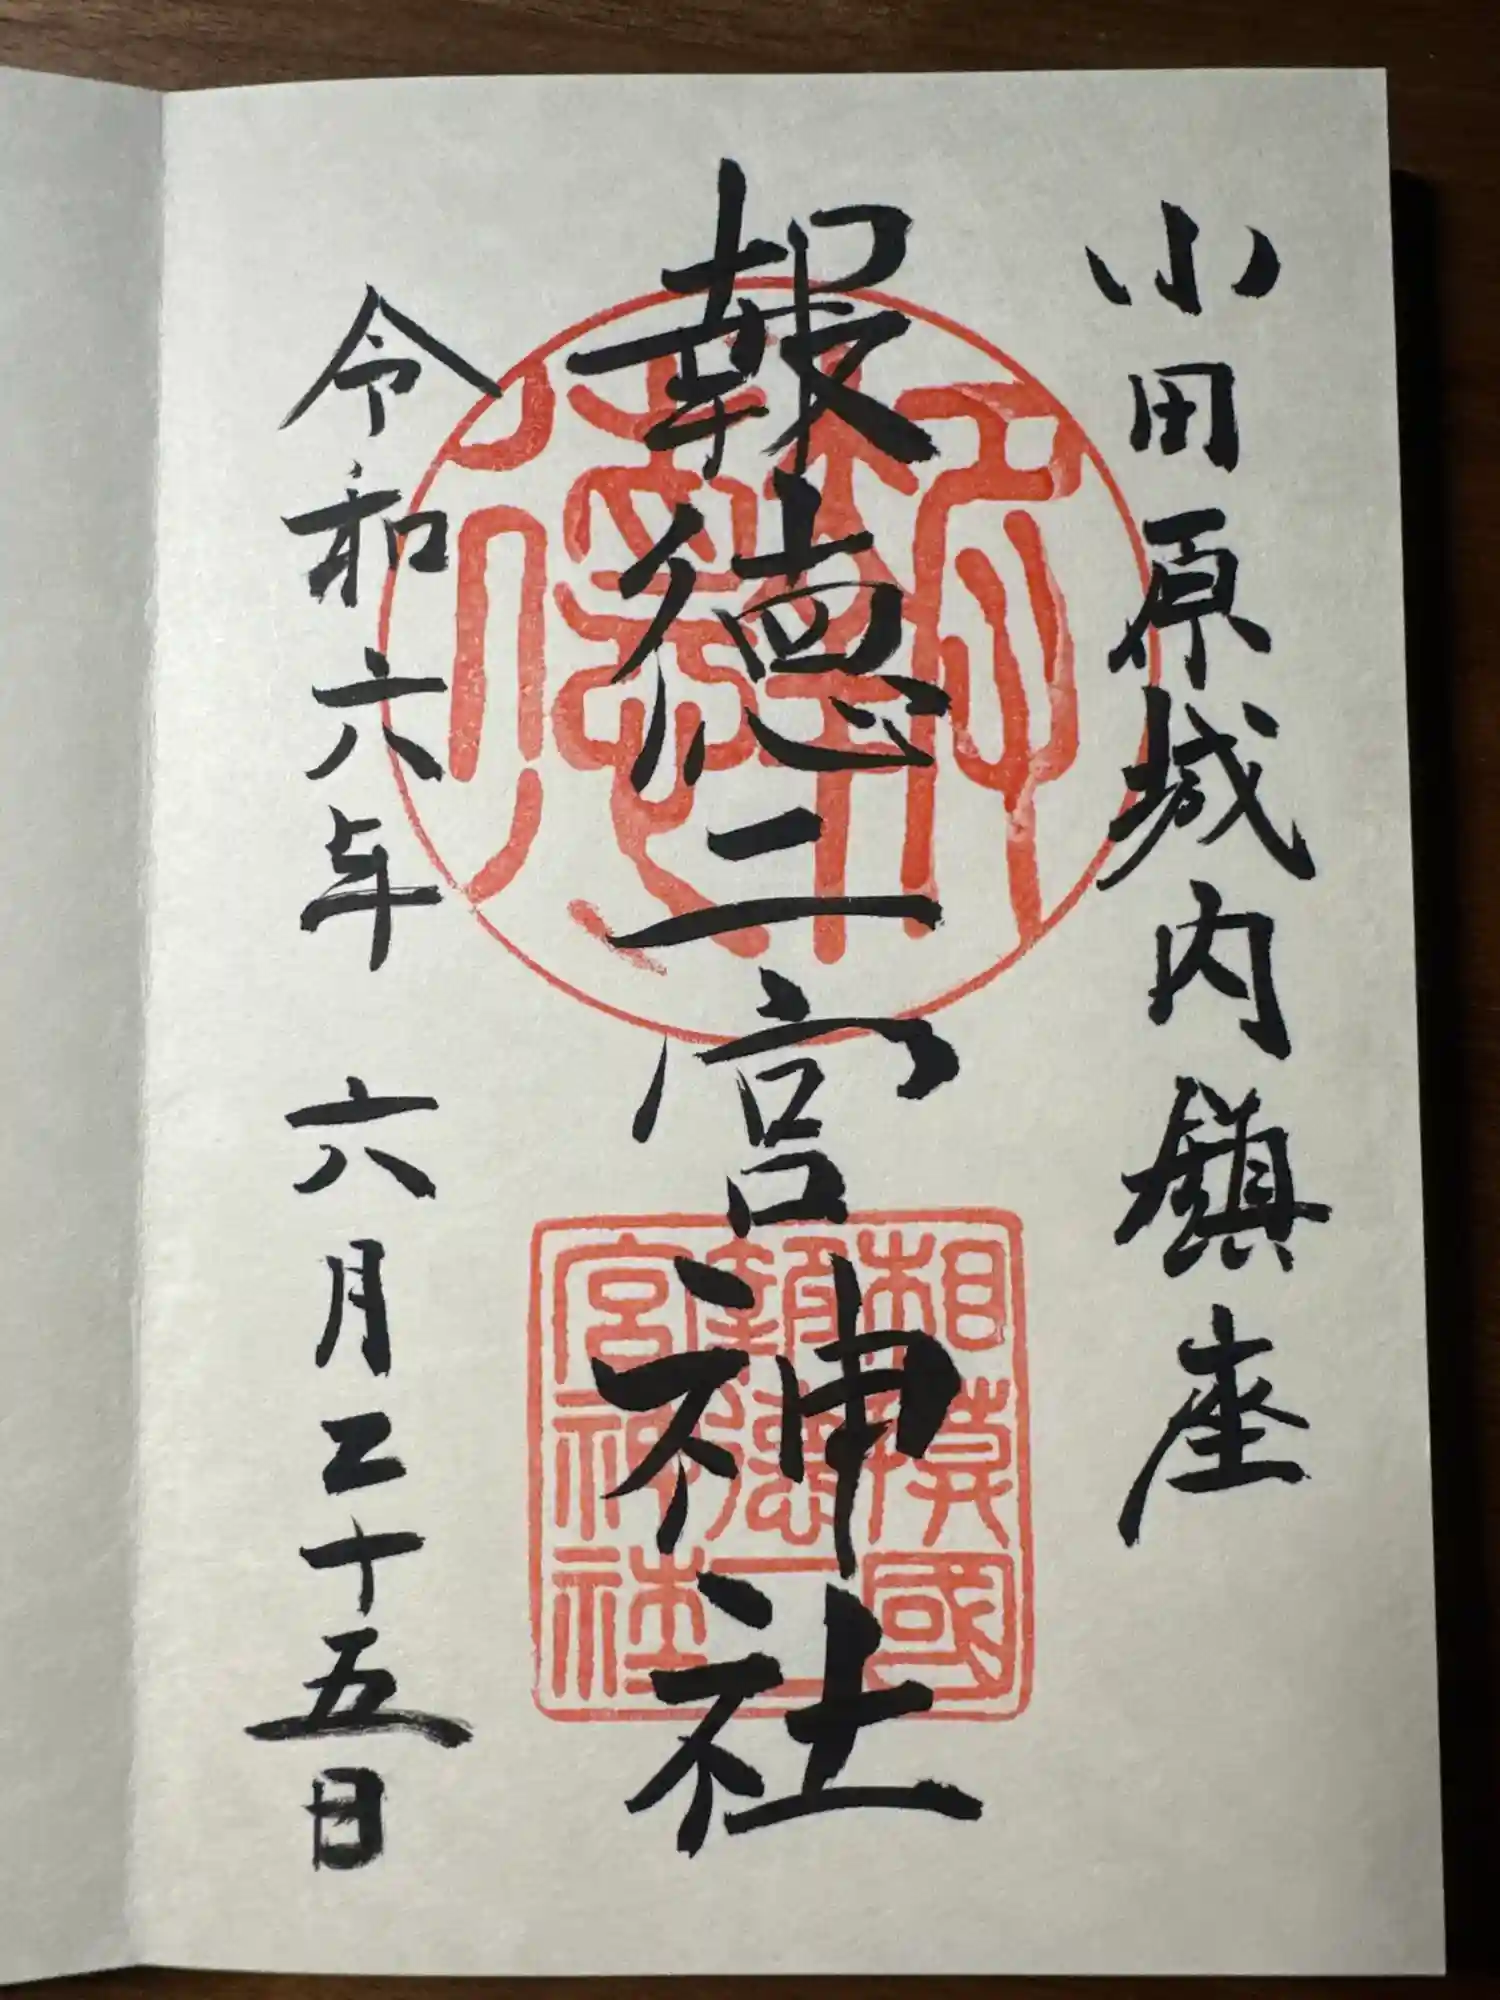 小田原城内鎮座
報徳二宮神社
令和六年 六月二十五日
報徳
相模國
報徳二
宮神社